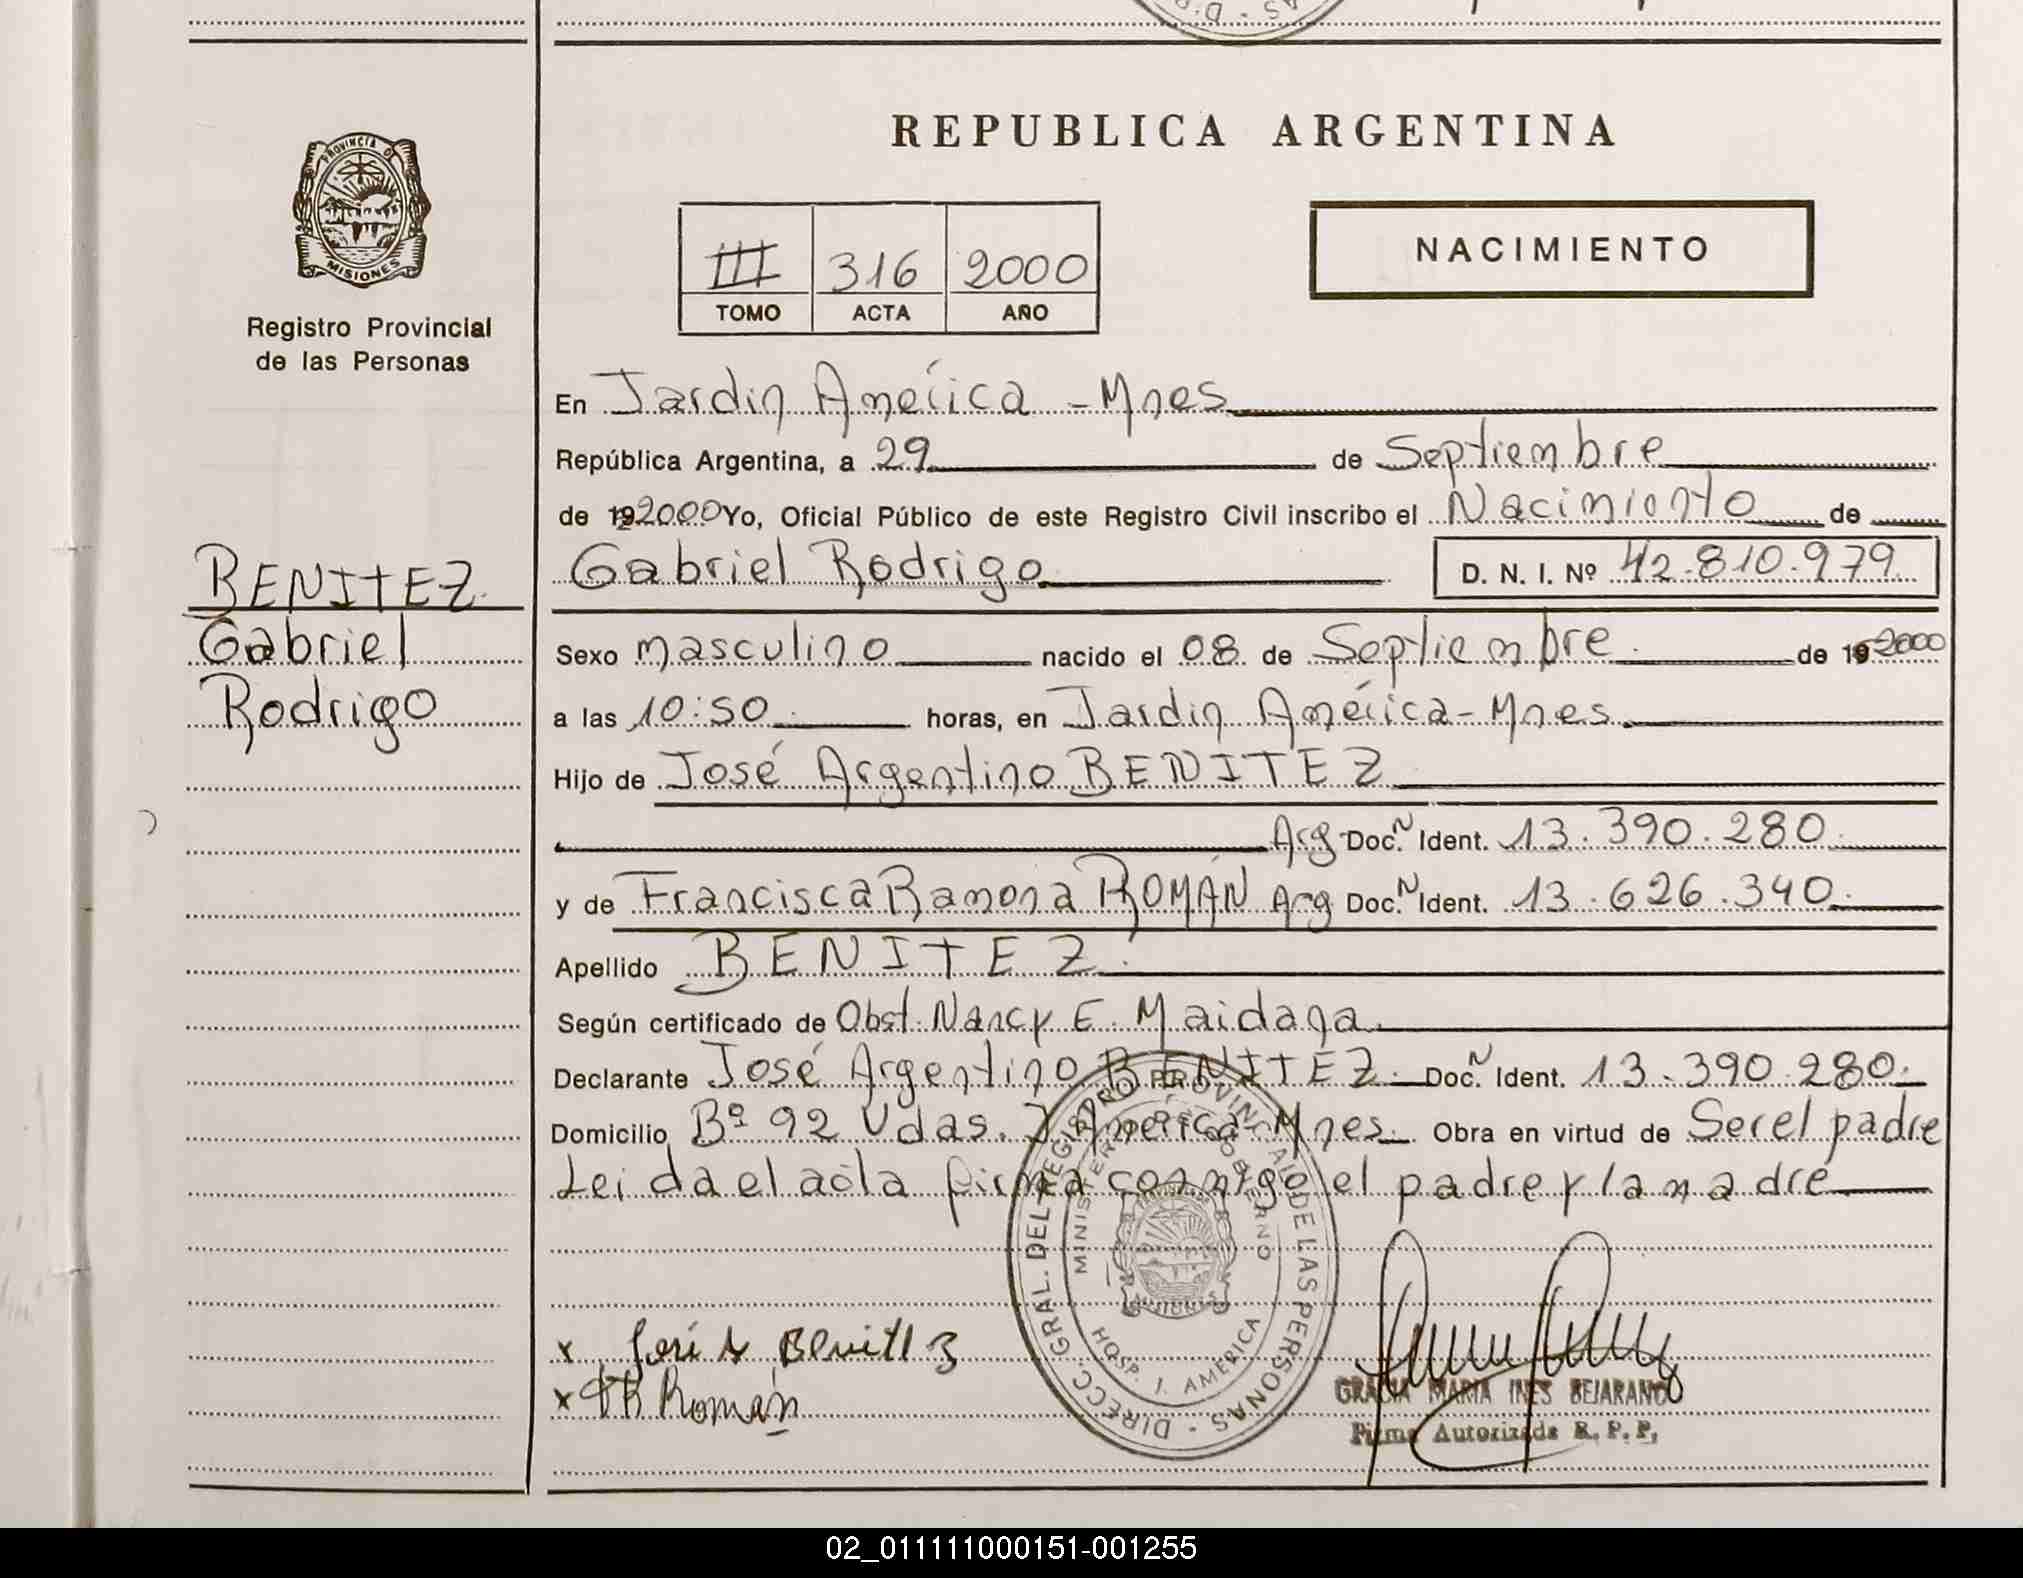 REPUBLICA ARGENTINA
PROVINCIA D
MISIONES
Registro Provincial
de las Personas
III 316 2000
TOMO ACTA AÑO
NACIMIENTO
En Jardin América - Mnes
República Argentina, a 29 de Septiembre
de 192000 Yo, Oficial Público de este Registro Civil inscribo el Nacimiento de
Gabriel Rodrigo D. N. I. Nº 42.810.979
BENITEZ
Gabriel
Rodrigo
Sexo masculino nacido el 08 de Septiembre de 19 2000
a las 10:50 horas, en Jardin América - Mnes
Hijo de José Argentino BENITEZ
Arg Doc. N Ident. 13.390.280
y de Francisca Ramona ROMÁN Arg Doc. N Ident. 13.626.340
Apellido BENITEZ
Según certificado de Obst. Nancy E. Maidana
Declarante José Argentino BENITEZ Doc. N Ident. 13.390.280
Domicilio Bº 92 Vdas. J. América Mnes Obra en virtud de Ser el padre
Leida el acta firma conmigo el padre y la madre
DIRECC. GRAL. DEL REGISTRO PROVINCIAL DE LAS PERSONAS
MINISTERIO DE GOBIERNO
MISIONES
HOSP. J. AMERICA
x José A Benitez
x FR Román
GRACIA MARIA INES BEJARANO
Firma Autorizada R. P. P.
02_011111000151-001255